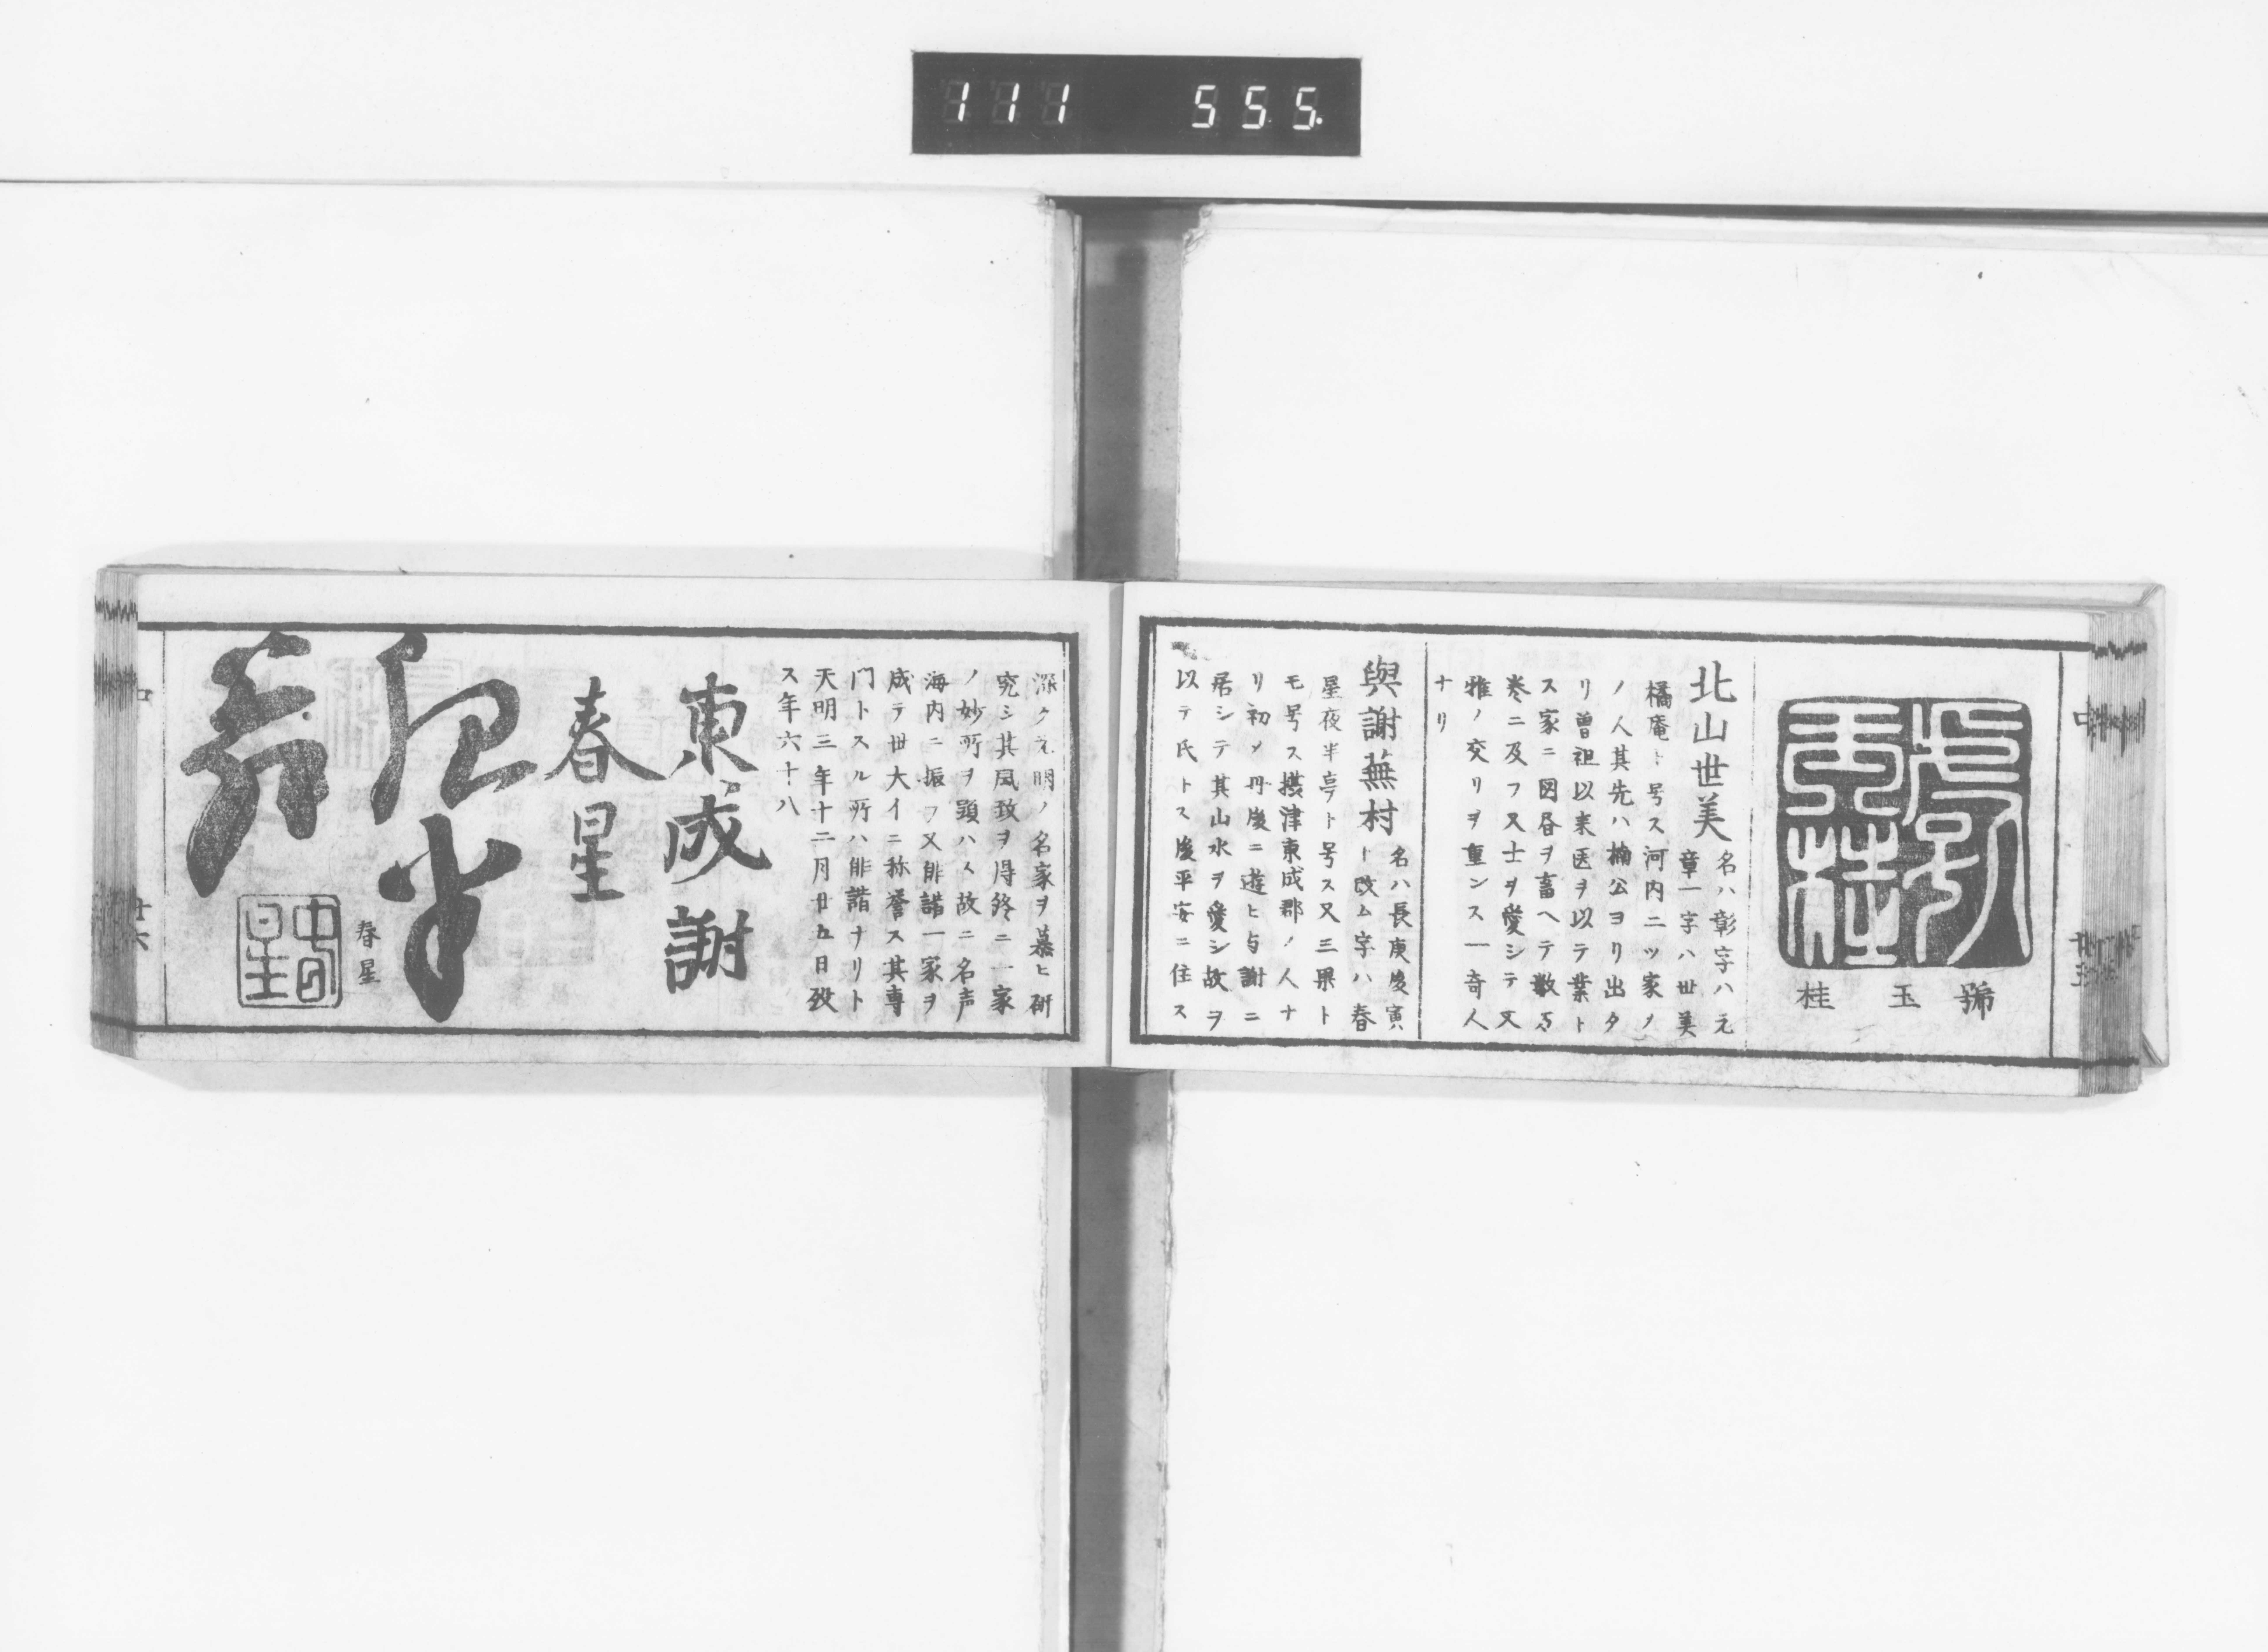 111 555.
號玉桂
號玉桂
北山世美
名ハ彰字ハ元
章一字ハ世美
橘庵ト号ス河内二ツ家ノ
ノ人其先ハ楠公ヨリ出タ
リ曽祖以来医ヲ以テ業ト
ス家ニ図昏ヲ畜ヘテ数万
巻ニ及フ又士ヲ愛シテ文
雅ノ交リヲ重ンス一奇人
ナリ
與謝蕪村
名ハ長庚後寅
ト改ム字ハ春
星夜半亭ト号ス又三果ト
モ号ス摂津東成郡ノ人ナ
リ初メ丹後ニ遊ヒ与謝ニ
居シテ其山水ヲ愛シ故ヲ
以テ氏トス後平安ニ住ス
深ク元明ノ名家ヲ慕ヒ研
究シ其風致ヲ得終ニ一家
ノ妙所ヲ顕ハス故ニ名声
海内ニ振フ又俳諧一家ヲ
成テ世大イニ称誉ス其専
門トスル所ハ俳諧ナリト
天明三年十二月廿五日歿
ス年六十八
東成謝
春星
夜半
翁
春星
春星
中
廿六